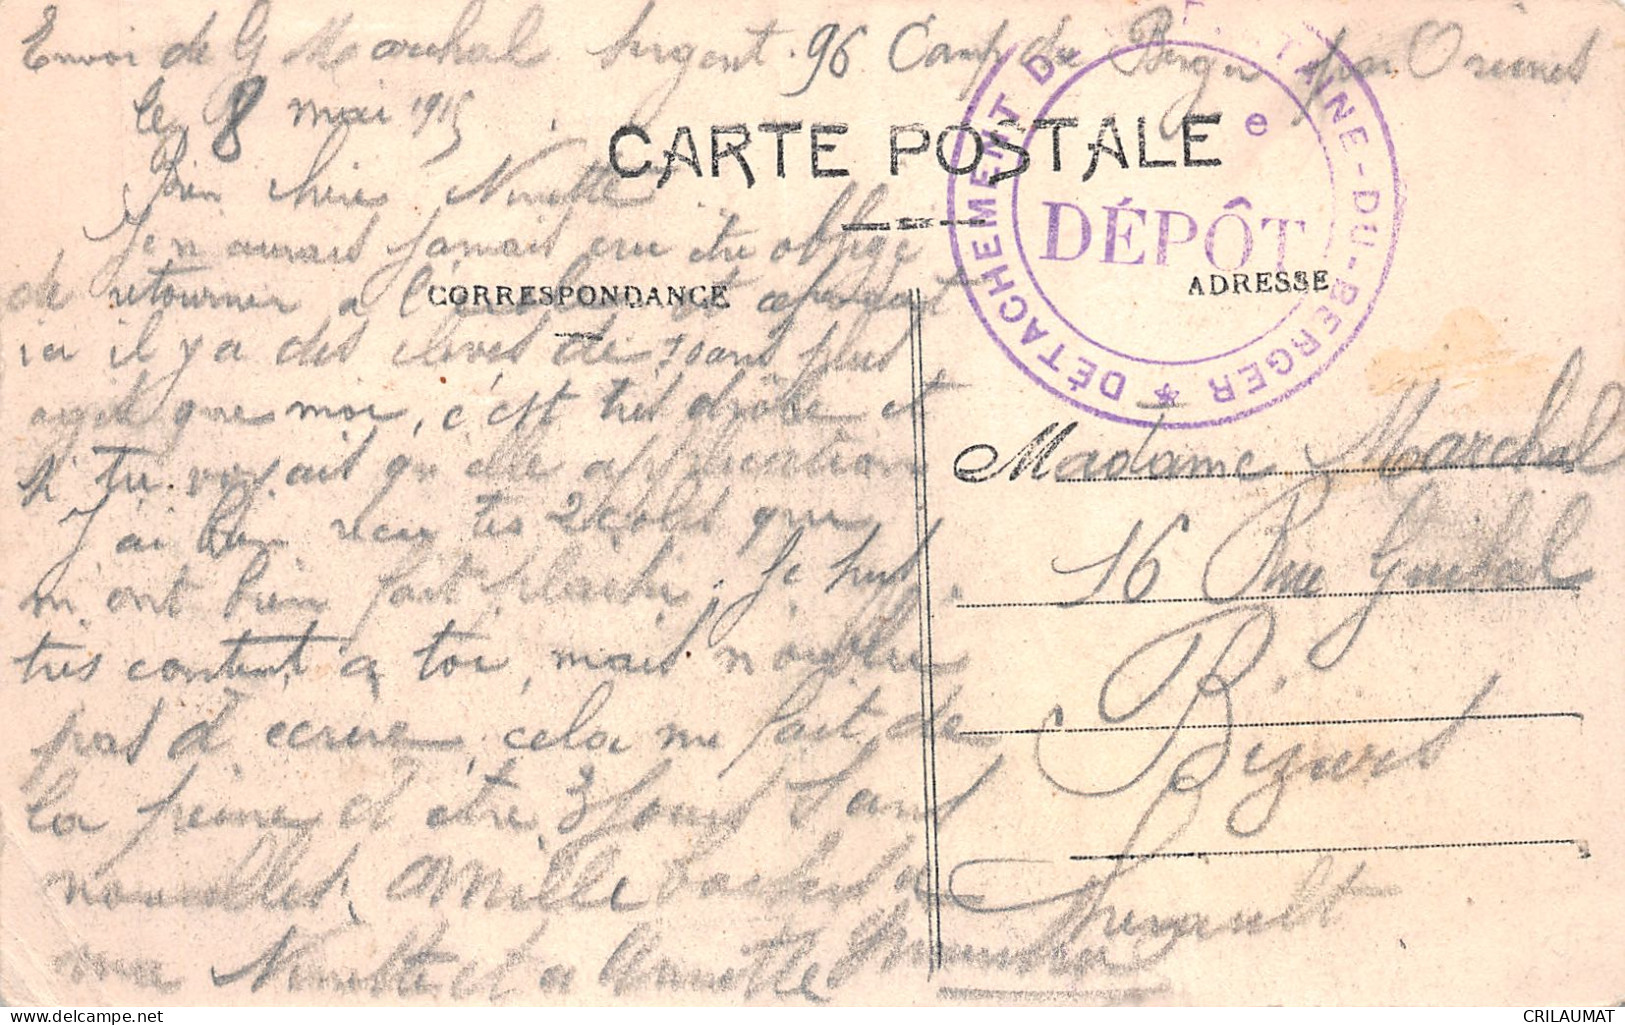 Envoi de G Marchal Sergent 96 Camp du Berger par Orcines
le 8 mai 1915
CARTE POSTALE
DÉTACHEMENT DE FONTAINE-DU-BERGER *
e
DÉPÔT
ADRESSE
CORRESPONDANCE
Bien chère Ninette
Je n aurais jamais cru être obligé
de retourner a l'ecole et cependant
ici il y a des eleves de 10 ans plus
agés que moi, c'est très drôle et
si tu voyais qu elle application
J'ai bien recu tes 2 colis qui
m'ont bien fait plaisir, Je suis
très content a toi, mais n'oublie
pas d' écrire, cela me fait de
la peine d être 3 jours sans
nouvelles, Mille baisers a
ma Ninette et a Annette
Madame Marchal
16 Rue Guibal
Beziers
Herault
CRILAUMAT